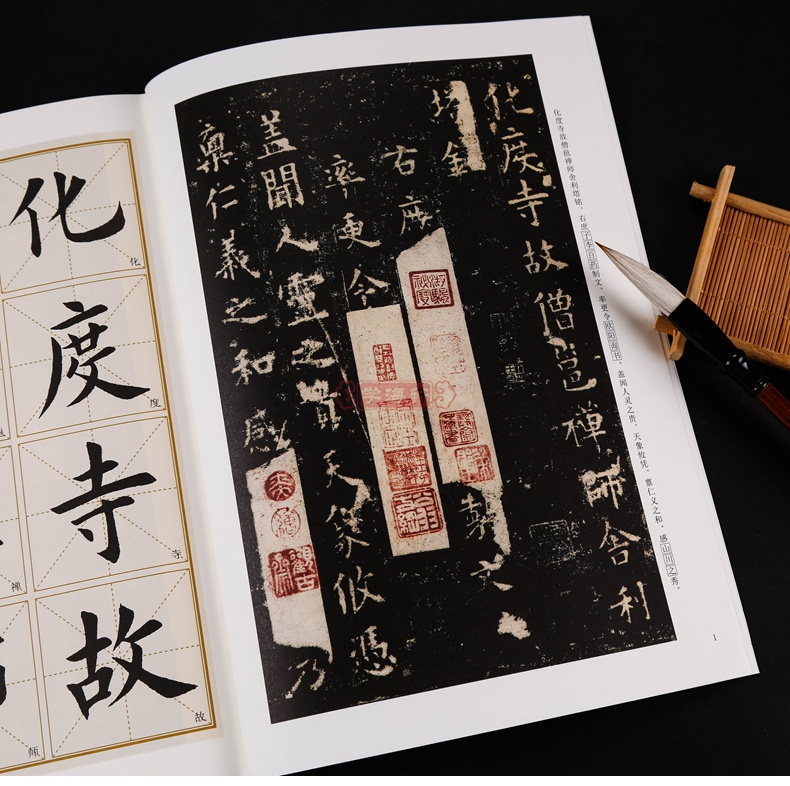 化度寺故僧邕禅师舍利塔铭。右庶子李百药制文。率更令欧阳询书。盖闻人灵之贵，天象攸凭。禀仁义之和，感山川之秀。
化度寺故僧邕禪師舍利
塔銘
右庶
製文
率更令
蓋聞人靈之貴天象攸憑
稟仁義之和感
乃
1
化
化
度
度
寺
寺
故
故
禅